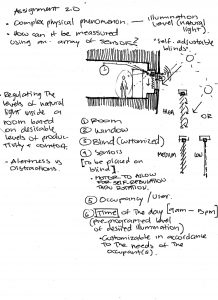 Assignment 2.0
• Complex physical phenomenon. — Illumination
Level (natural
light)
• How can it be meassured
using an array of sensors?
"Self-adjustable
blinds".
• Regulating the
levels of natural
light inside a
room based
on desirable
levels of produc-
tivity & comfort.
• Alertness vs
Distractions.
HIGH
OR
MEDIUM
LOW
① Room
② Window
③ Blind (customized)
④ Sensors
[to be placed on
blind]
• MOTOR TO ALLOW
FOR SELF REGULATION
ROTATION.
⑤ Occupancy / User.
⑥ [Time] of the day [9am – 5pm]
(pre-programed level
of desired illumination)
• Customizable in accordance
to the needs of the
occupant(s).